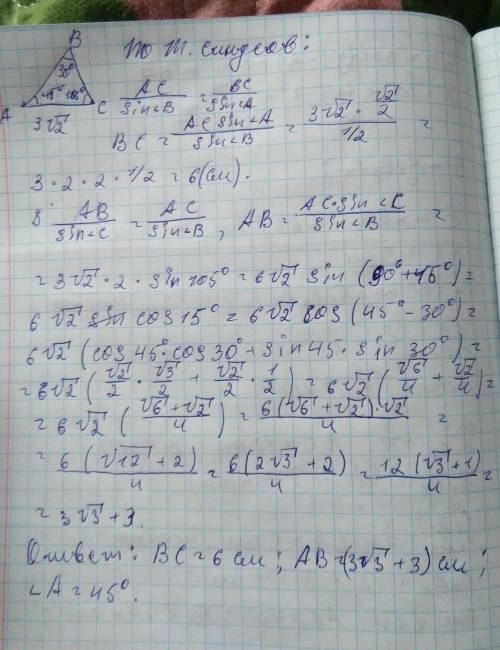 B
30°
A 45° 105° C
3√2
По т. синусов:
AC/sin∠B = BC/sin∠A
BC = AC·sin∠A/sin∠B = (3√2 · √2/2)/(1/2) =
3 · 2 · 2 · 1/2 = 6(см).
AB/sin∠C = AC/sin∠B, AB = AC·sin∠C/sin∠B =
= 3√2 · 2 · sin 105° = 6√2 sin (90° + 45°) =
6√2 cos 15° = 6√2 cos (45° - 30°) =
6√2 (cos 45° · cos 30° + sin 45 · sin 30°) =
= 6√2 (√2/2 · √3/2 + √2/2 · 1/2) = 6√2 (√6/4 + √2/4) =
= 6√2 ((√6 + √2)/4) = 6(√6 + √2)·√2/4 =
= 6(√12 + 2)/4 = 6(2√3 + 2)/4 = 12(√3 + 1)/4 =
= 3√3 + 3.
Ответ: BC = 6 см; AB = (3√3 + 3) см;
∠A = 45°.